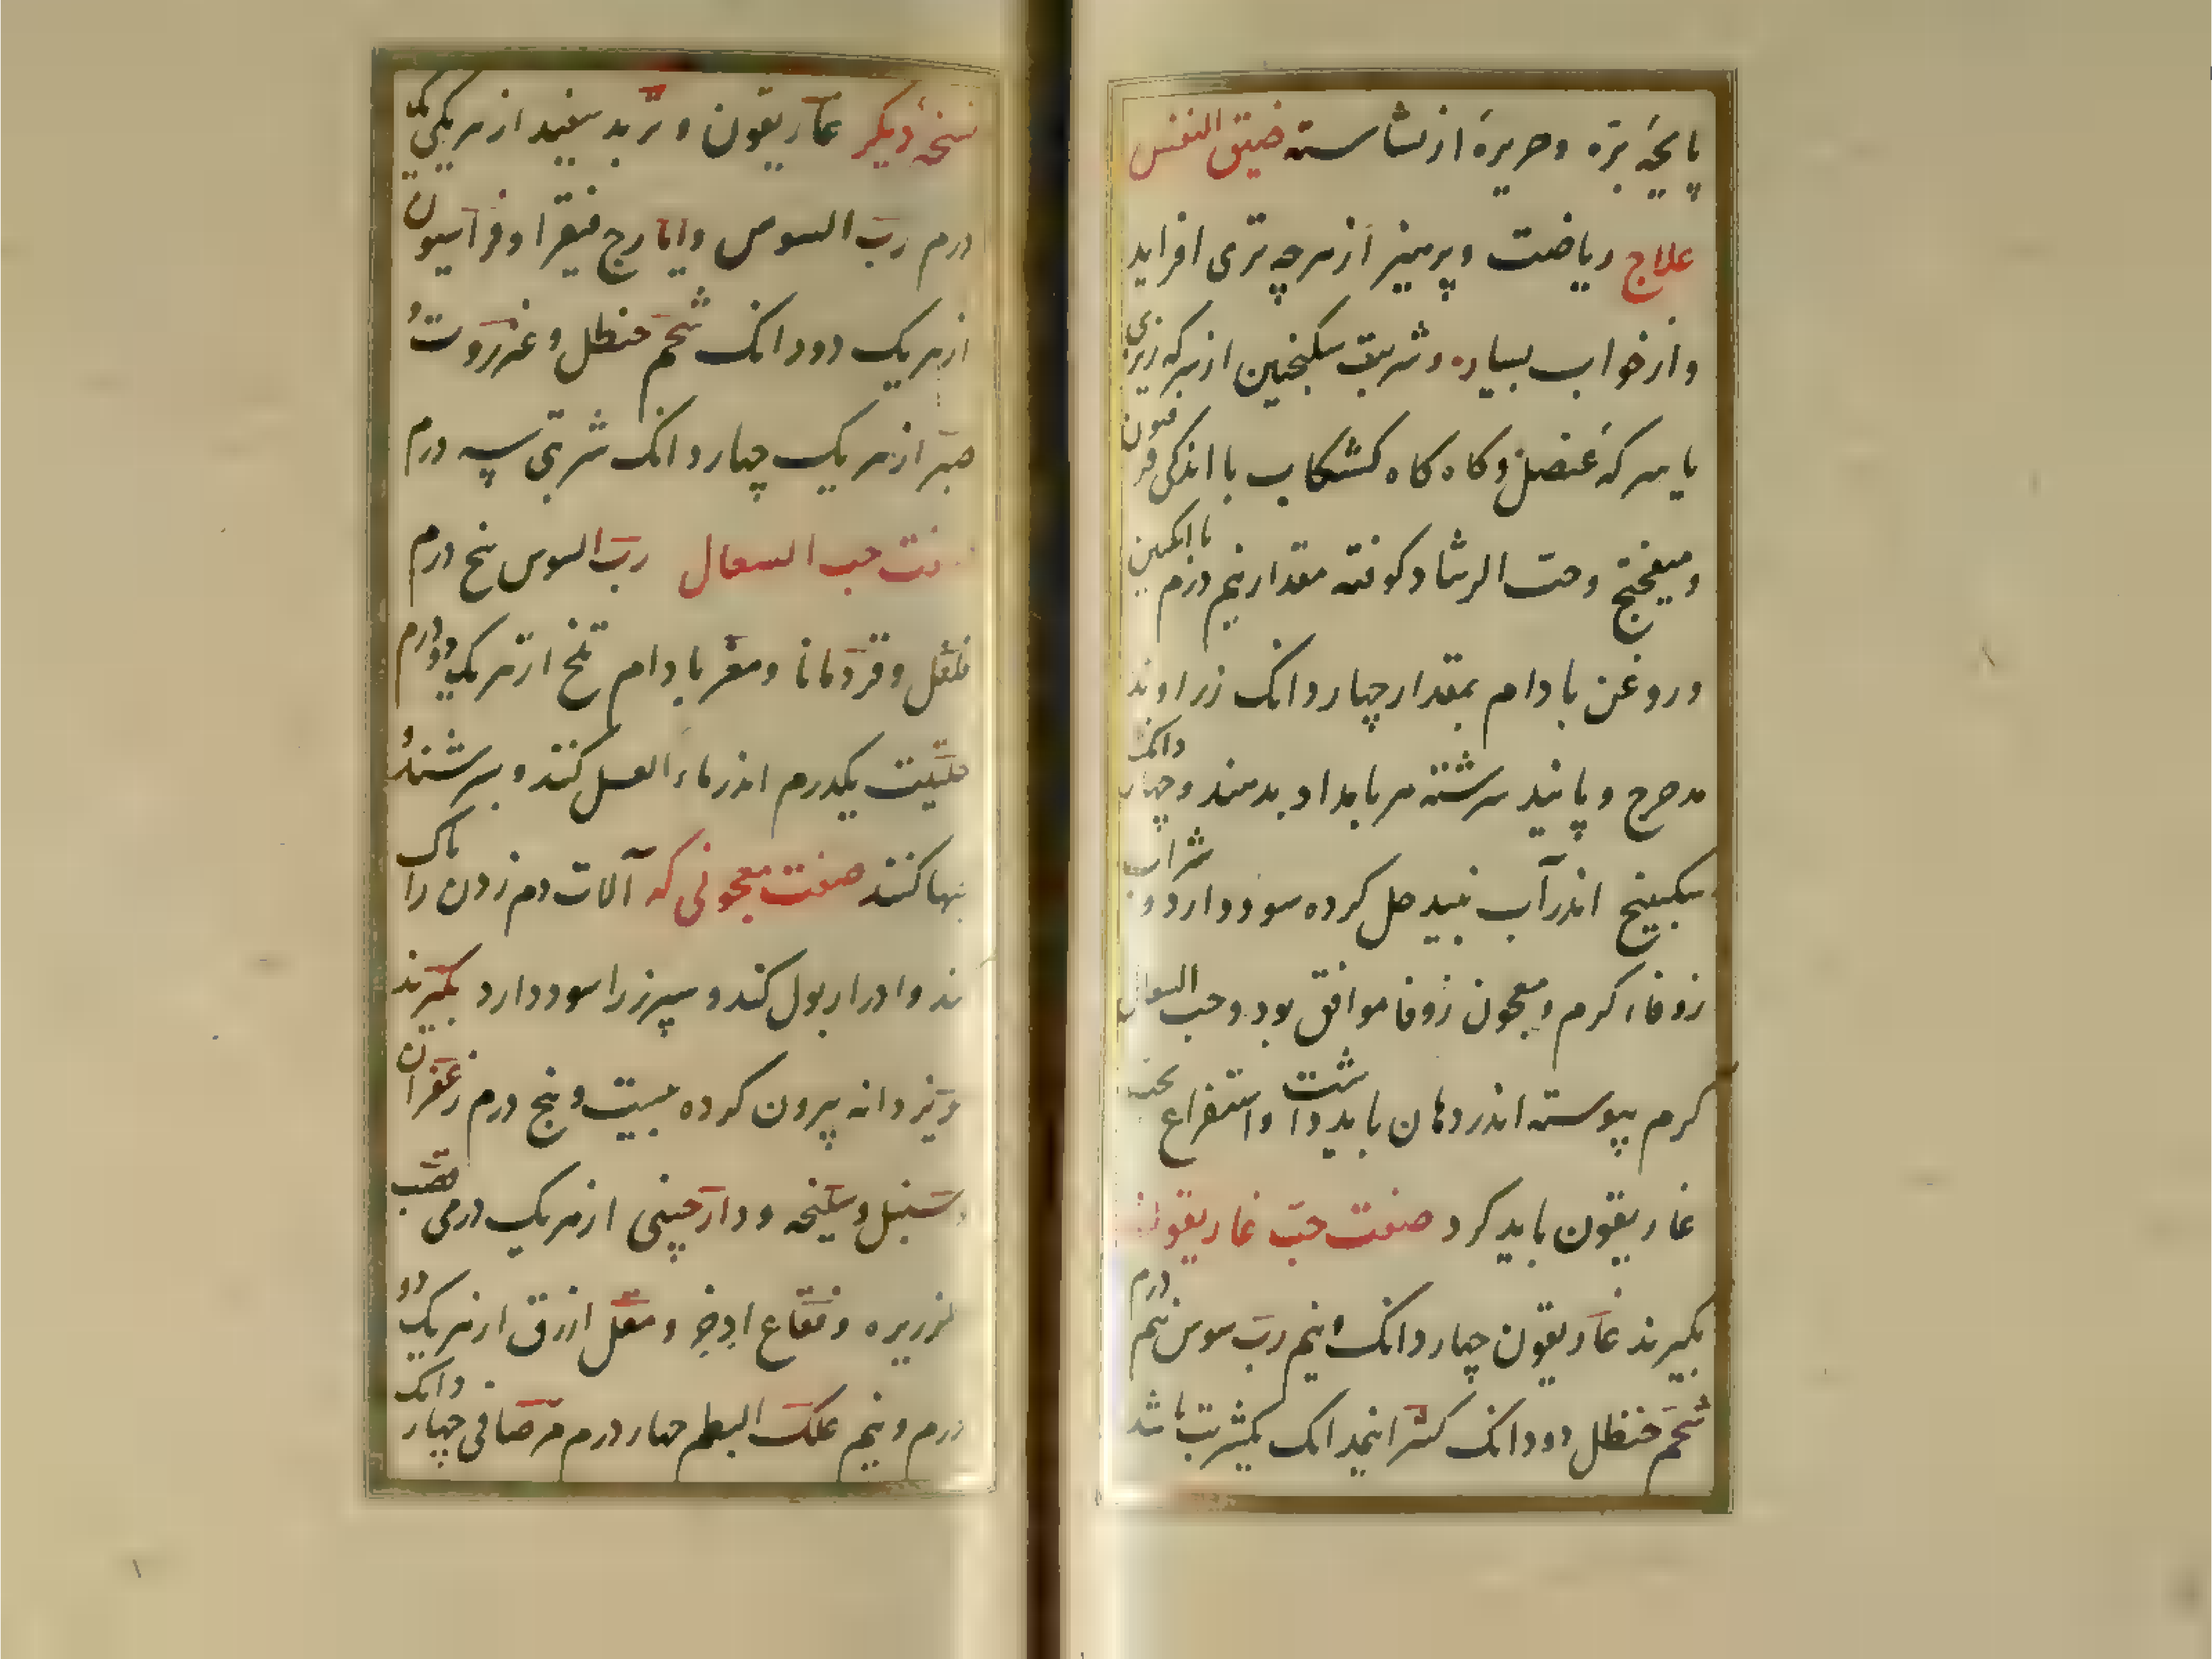 پایچهٔ بره و حریرهٔ از نشاسته ضیق النفس
علاج ریاضت و پرهیز از هرچه تری افزاید
و از خواب بسیار و شربت سکنجبین از سرکه زیزی
یا سرکه عنصل و کاه کاه کشکاب با اندکی فرفیون
و میفختج و حب الرشاد کوفته مقدار نیم درم با انکبین
و روغن بادام بمقدار چهار دانک زراوند
مدحرج و پانید سرشته هر بامداد بدهند و چهار دانک
سکبینج اندر آب نبید حل کرده سود دارد و شراب
زوفاء کرم و معجون زوفا موافق بود و حب السعال
کرم پیوسته اندر دهان باید داشت و استفراغ بحب
غاریقون باید کرد صفت حب غاریقون
بکیرند غاریقون چهار دانک و نیم رب سوس نیم درم
شحم حنظل دو دانک کتیرا نیمدانک یکشربت باشد
نسخهٔ دیکر غاریقون و تربد سفید از هر یکی یک
درم رب السوس و ایارج فیقرا و فراسیون
از هر یک دو دانک شحم حنظل و عنزروت و
صبر از هر یک چهار دانک شربتی سه درم
صفت حب السعال رب السوس پنج درم
فلفل و قردمانا و مغز بادام تلخ از هر یک دو درم
حلتیت یکدرم اندر ماء العسل کنند و بسرشند و
حبها کنند صفت معجونی که آلات دم زدن را پاک
کند و ادرار بول کند و سپرز را سود دارد بکیرند
مویز دانه بیرون کرده بیست و پنج درم زعفران
و سنبل و سلیخه و دارچینی از هر یک درمی قصب
الذریره و فقاع اذخر و مقل ازرق از هر یک دو
درم و نیم علک البطم چهار درم مر صافی چهار دانک